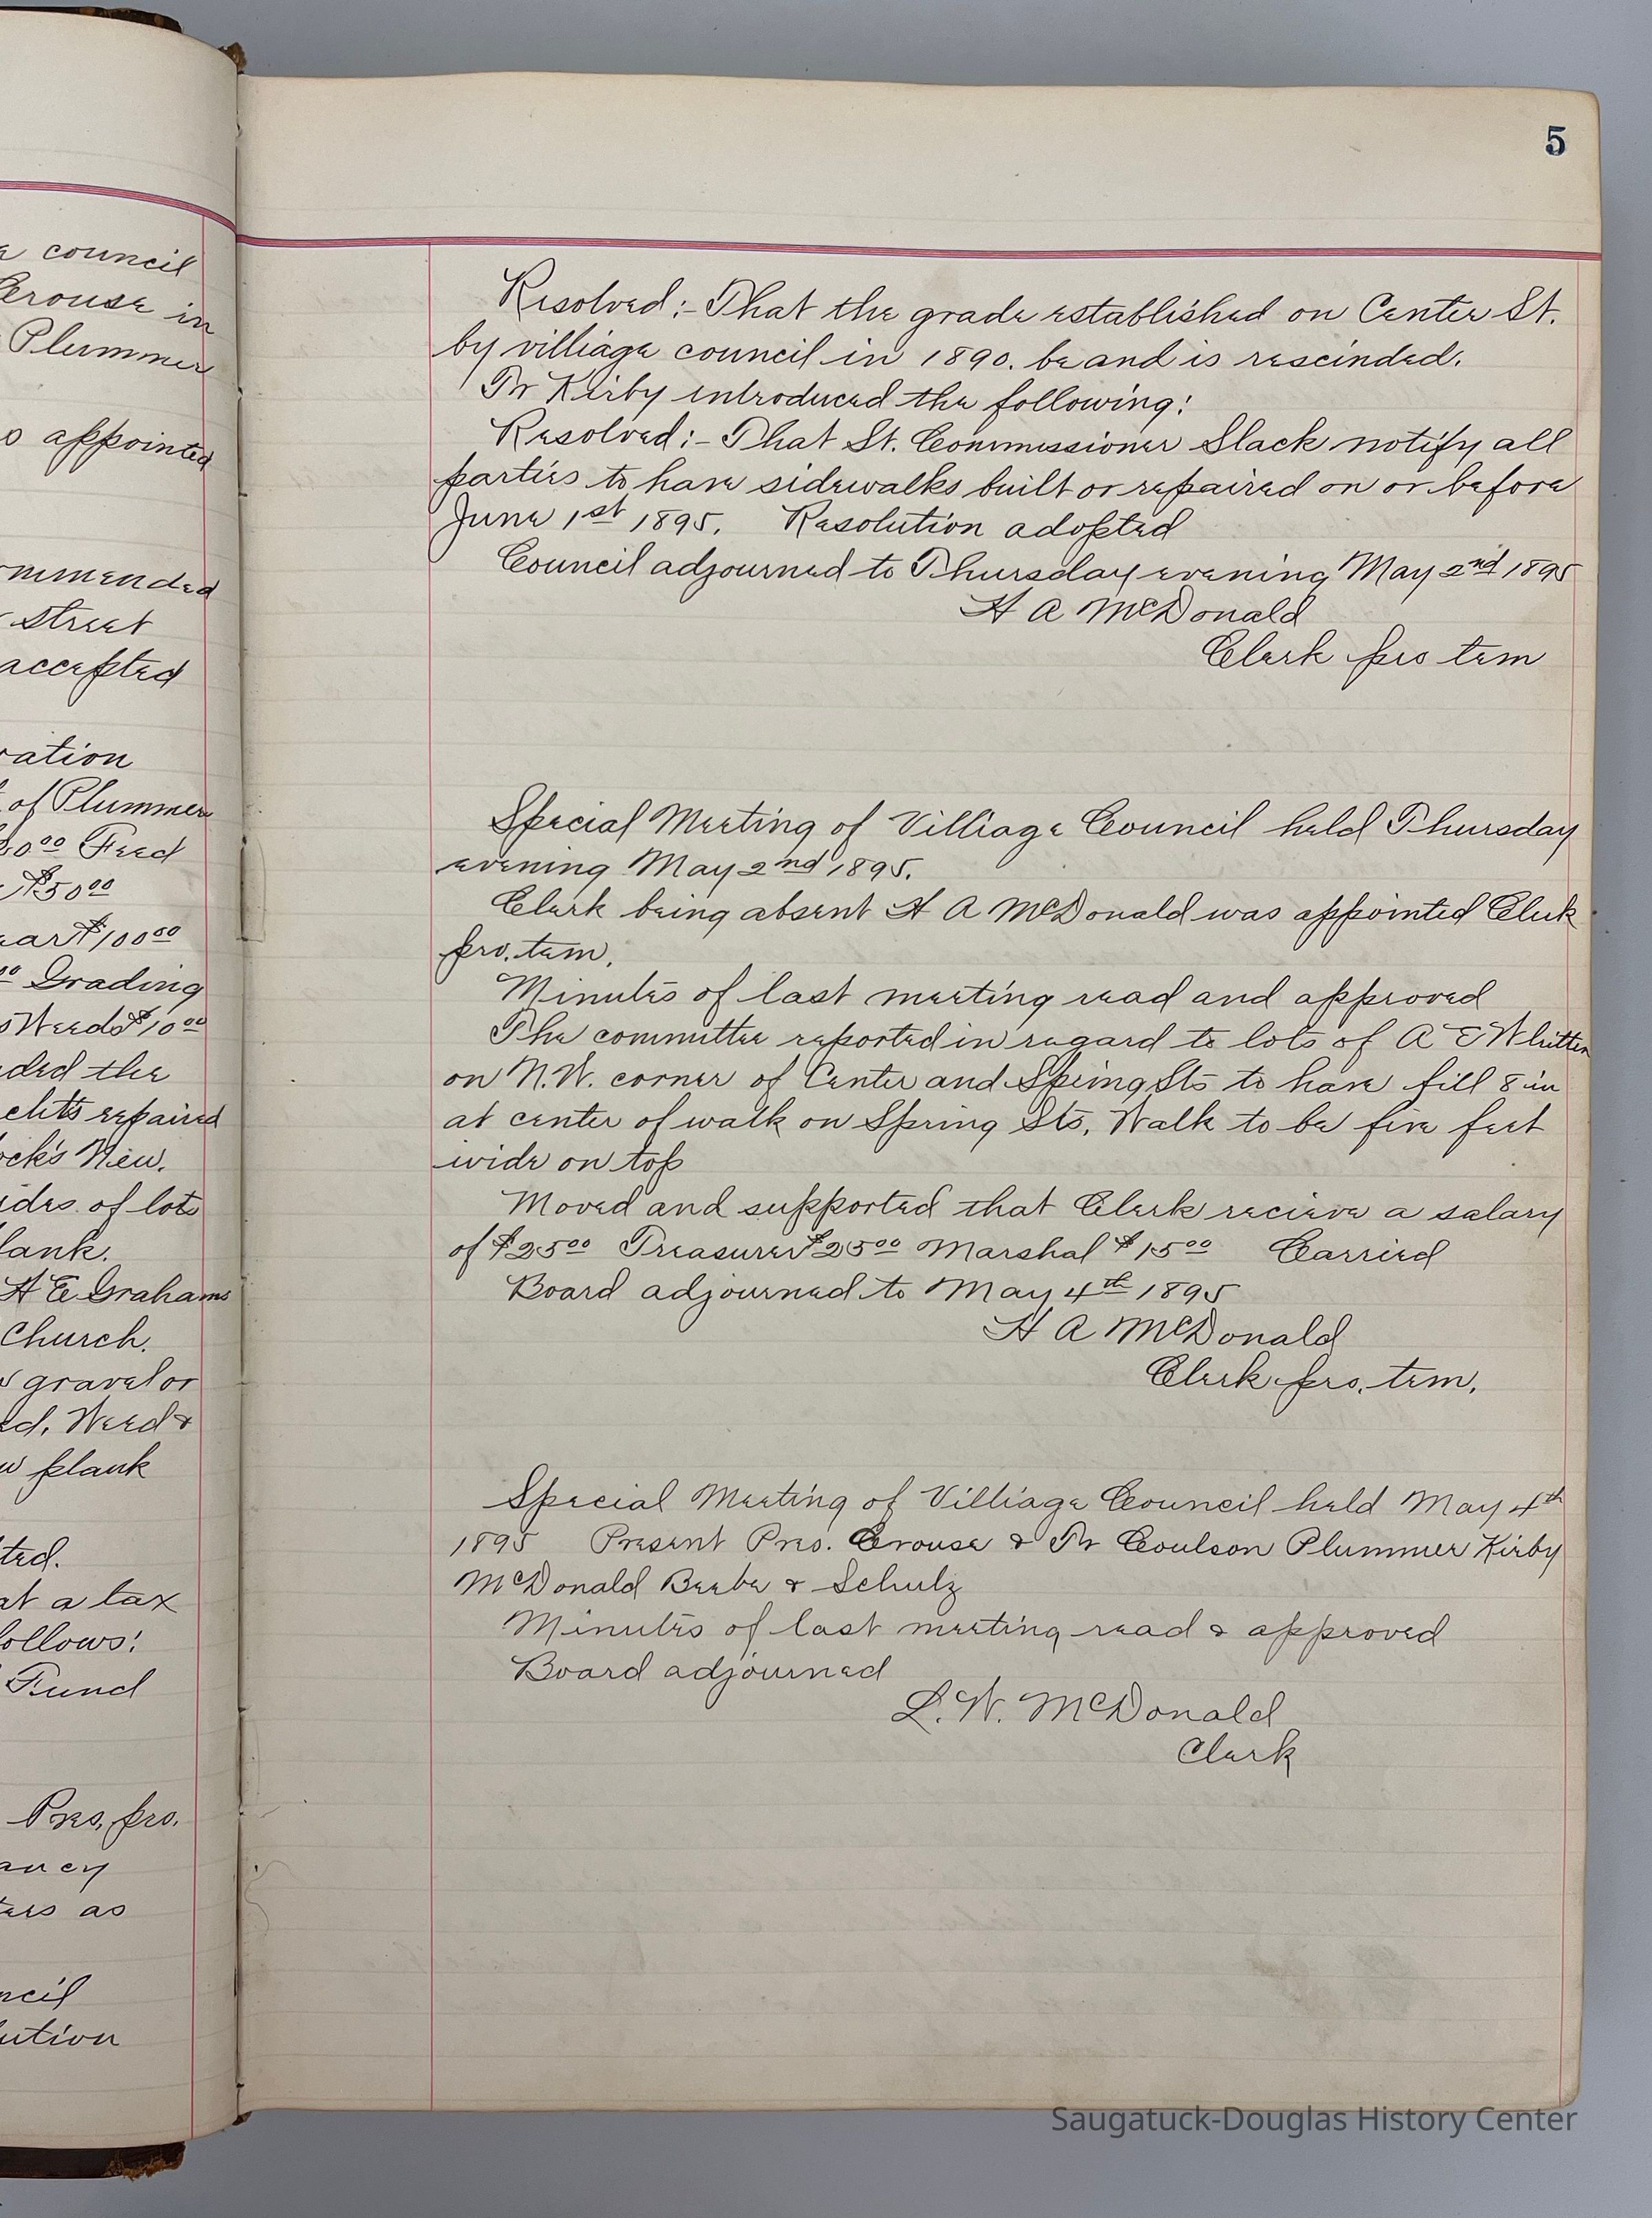 council
Crouse in
Plummer
appointed
mmended
Street
accepted
ration
of Plummer
Feed
$50 00
$100 00
Grading
Weeds $10 00
ded the
repaired
ock's New.
ides of lots
lank.
A E Grahams
Church.
gravel or
ed, Weed &
plank
ted.
at a tax
follows:
Fund
Pres, pro.
ancy
ters as
ncil
lution
5
Resolved:- That the grade established on Center St.
by villiage council in 1890. be and is rescinded.
Tr Kirby introduced the following:
Resolved:- That St. Commissioner Slack notify all
parties to have sidewalks built or repaired on or before
June 1st 1895. Resolution adopted
Council adjourned to Thursday evening May 2nd 1895
H A McDonald
Clerk pro tem
Special Meeting of Villiage Council held Thursday
evening May 2nd 1895.
Clerk being absent H A McDonald was appointed Clerk
pro. tem.
Minutes of last meeting read and approved
The committee reported in regard to lots of A E Whitten
on N.W. corner of Center and Spring Sts to have fill 8 in
at center of walk on Spring Sts. Walk to be five feet
wide on top
Moved and supported that Clerk recieve a salary
of $25 00 Treasurer $25 00 Marshal $15 00 Carried
Board adjourned to May 4th 1895
H A McDonald
Clerk pro. tem.
Special Meeting of Villiage Council held May 4th
1895 Present Pres. Crouse & Tr Coulson Plummer Kirby
McDonald Beebe & Schulz
Minutes of last meeting read & approved
Board adjourned
L. W. McDonald
Clerk
Saugatuck-Douglas History Center